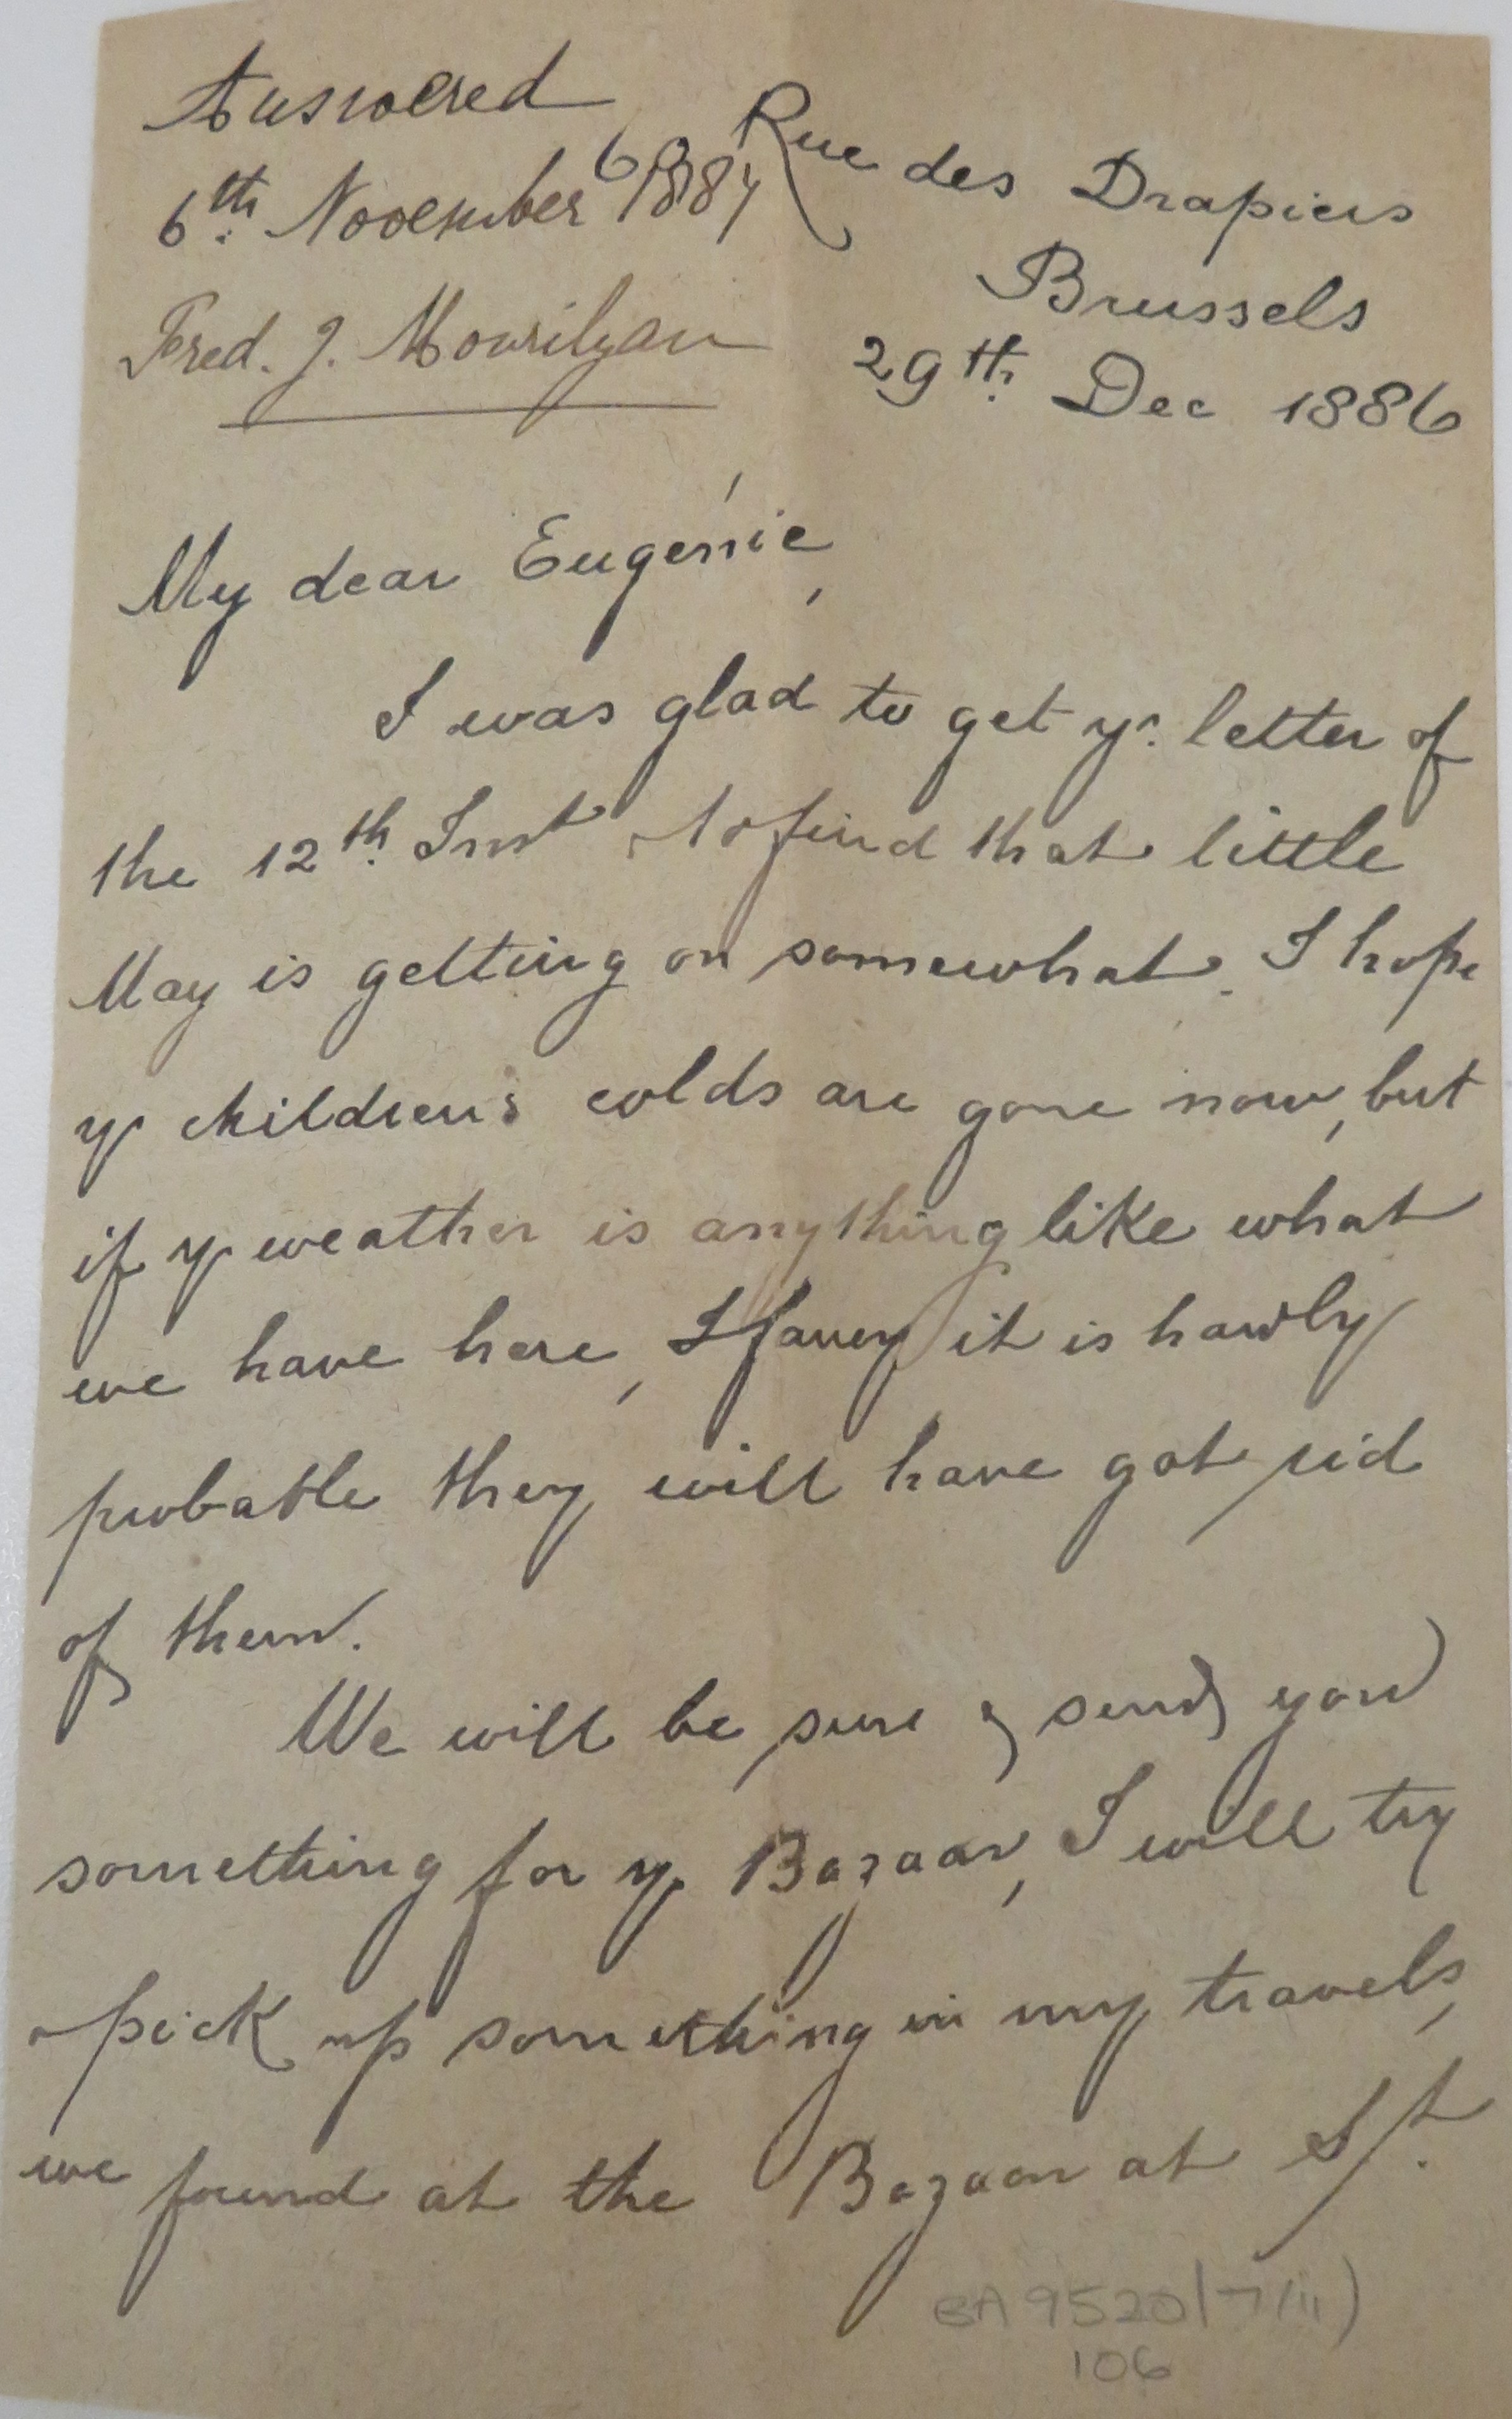 Answered
6th November 1887
Fred. J. Mourilyan
6 Rue des Drapiers
Brussels
29th Dec 1886
My dear Eugénie,
I was glad to get yr. letter of
the 12th. Inst & to find that little
May is getting on somewhat. I hope
yr children's colds are gone now, but
if yr weather is anything like what
we have here, I fancy it is hardly
probable they will have got rid
of them.
We will be sure & send you
something for yr Bazaar, I will try
& pick up something in my travels,
we found at the Bazaar at St.
BA 9520/7/11)
106